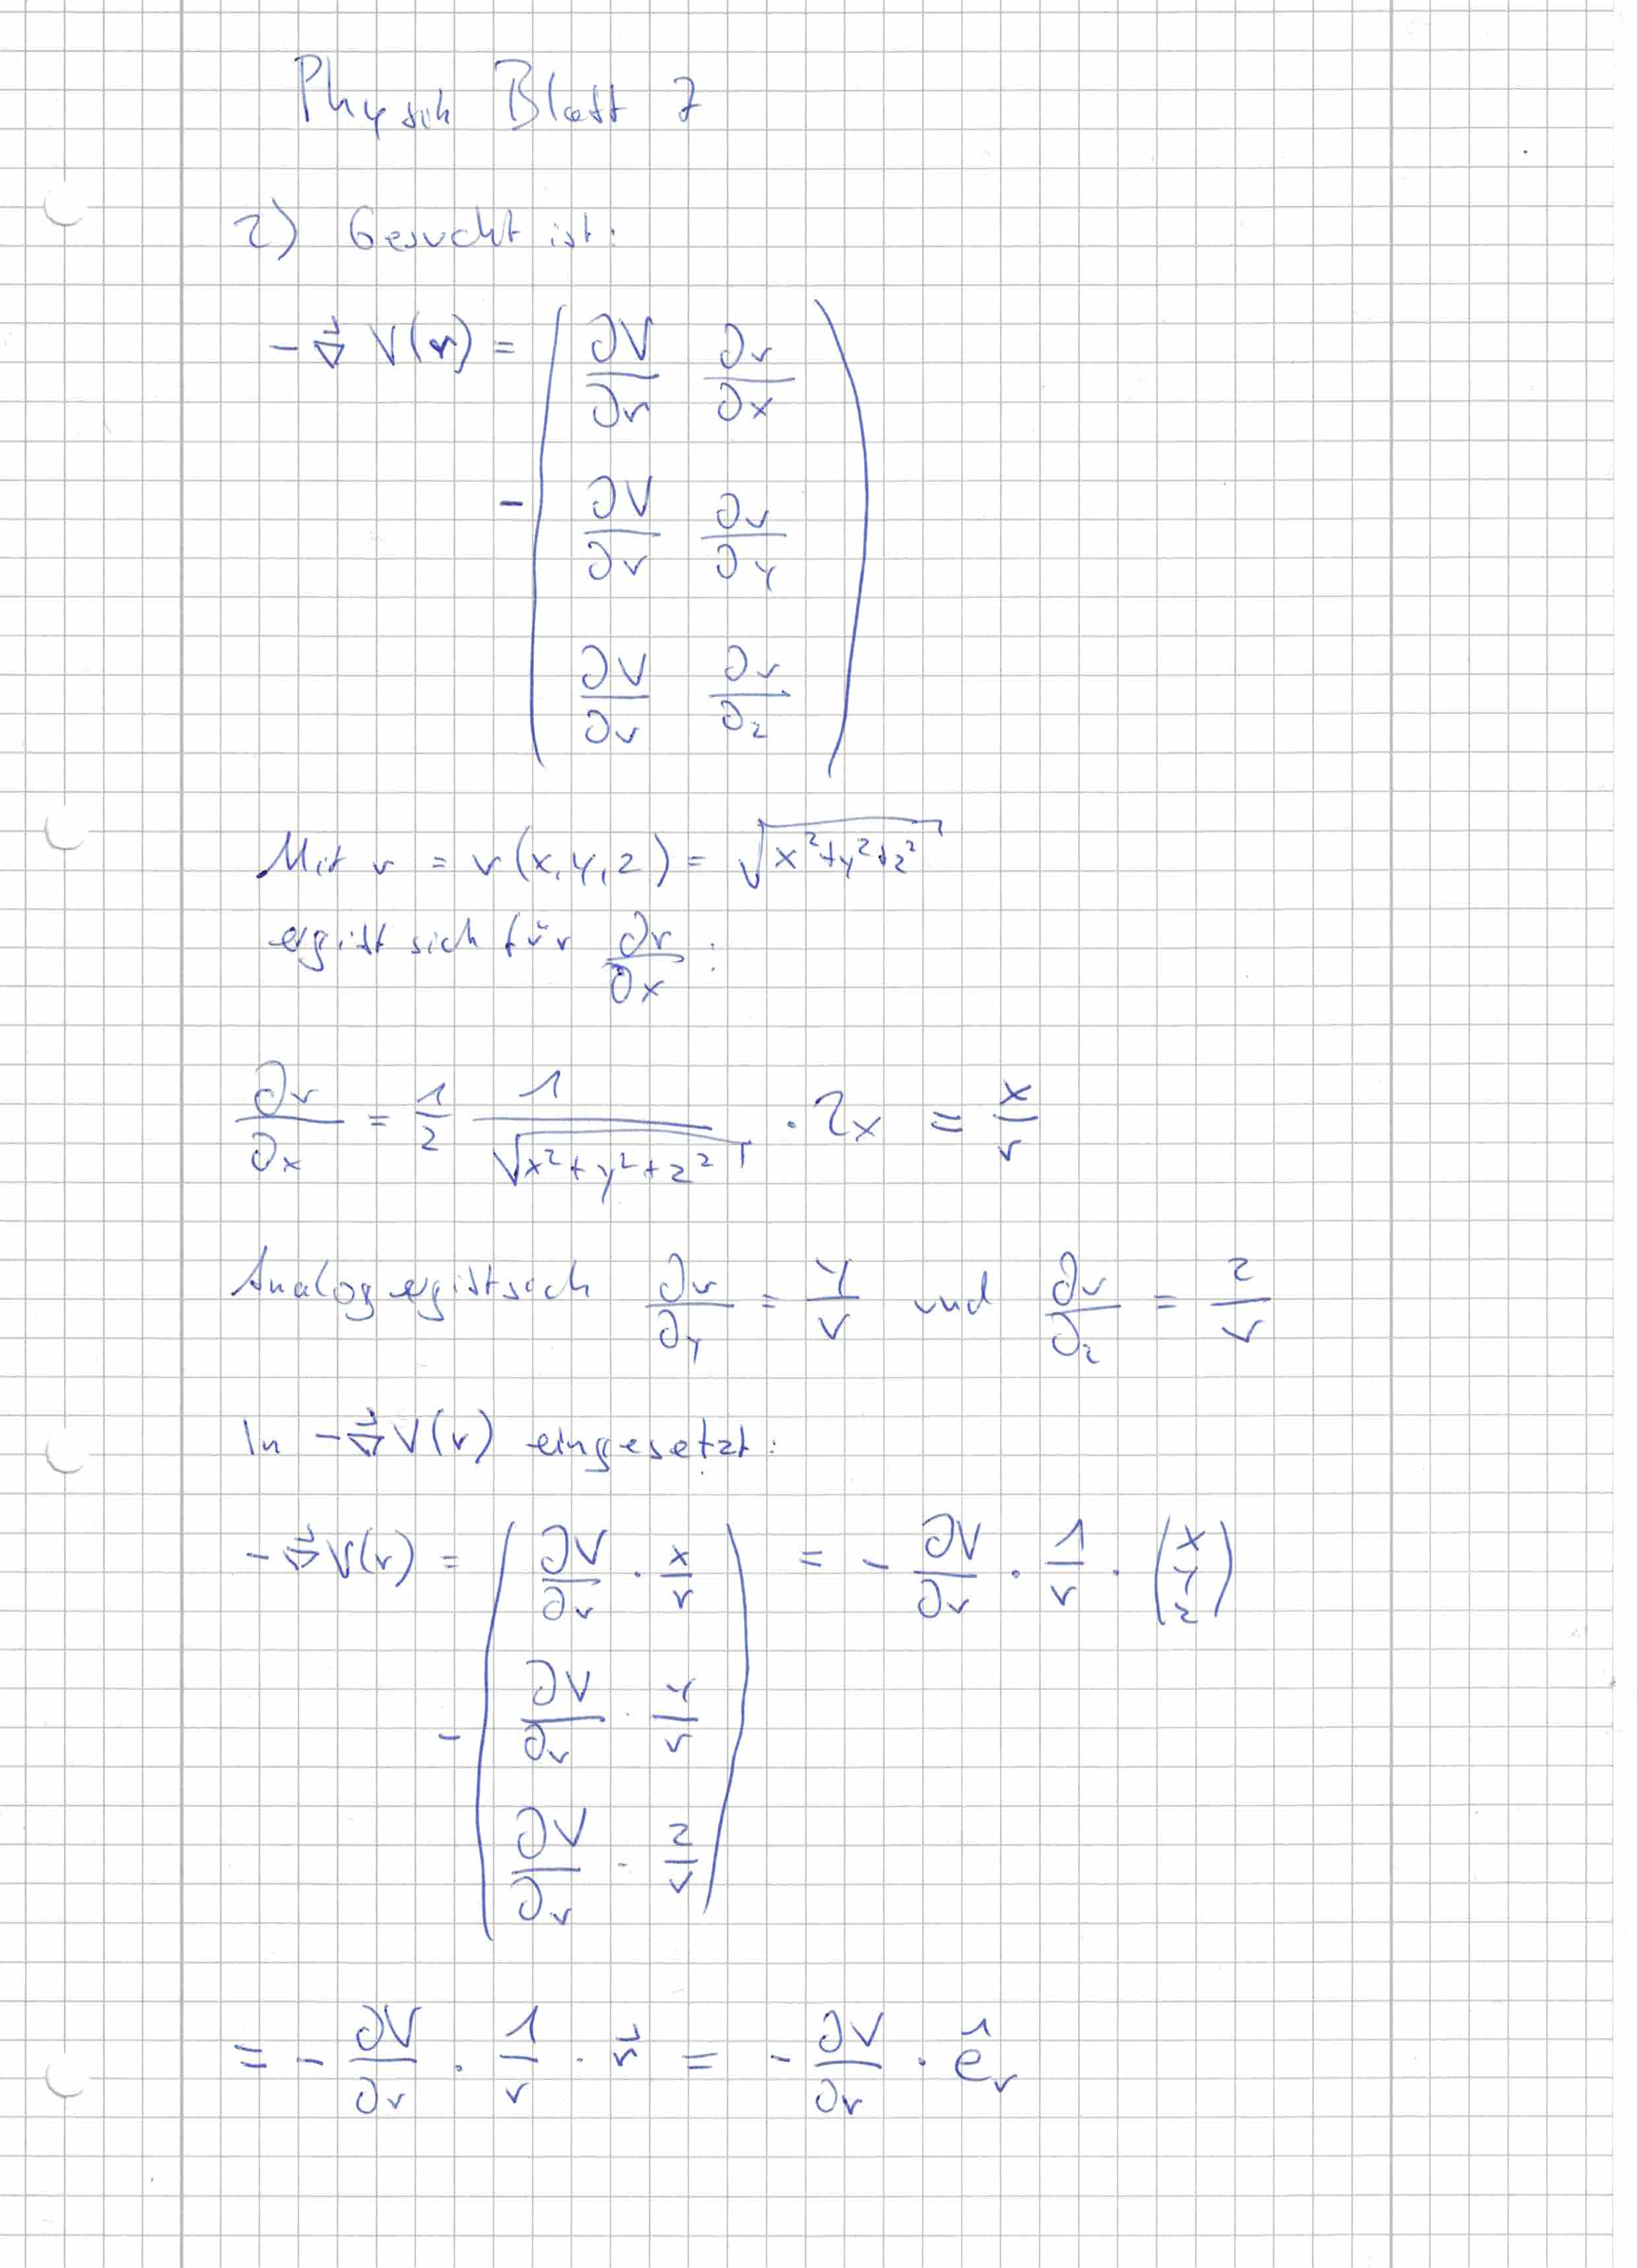 Physik Blatt 7
2) Gesucht ist:
-∇⃗ V(r) = -( ∂V/∂r ∂r/∂x
∂V/∂r ∂r/∂y
∂V/∂r ∂r/∂z )
Mit r = r(x,y,z) = √(x²+y²+z²)
ergibt sich für ∂r/∂x :
∂r/∂x = 1/2 1/√(x²+y²+z²) · 2x = x/r
Analog ergibt sich ∂r/∂y = y/r und ∂r/∂z = z/r
In -∇⃗ V(r) eingesetzt:
-∇⃗ V(r) = -( ∂V/∂r · x/r
∂V/∂r · y/r
∂V/∂r · z/r ) = - ∂V/∂r · 1/r · (x y z)
= - ∂V/∂r · 1/r · r⃗ = - ∂V/∂r · ê_r